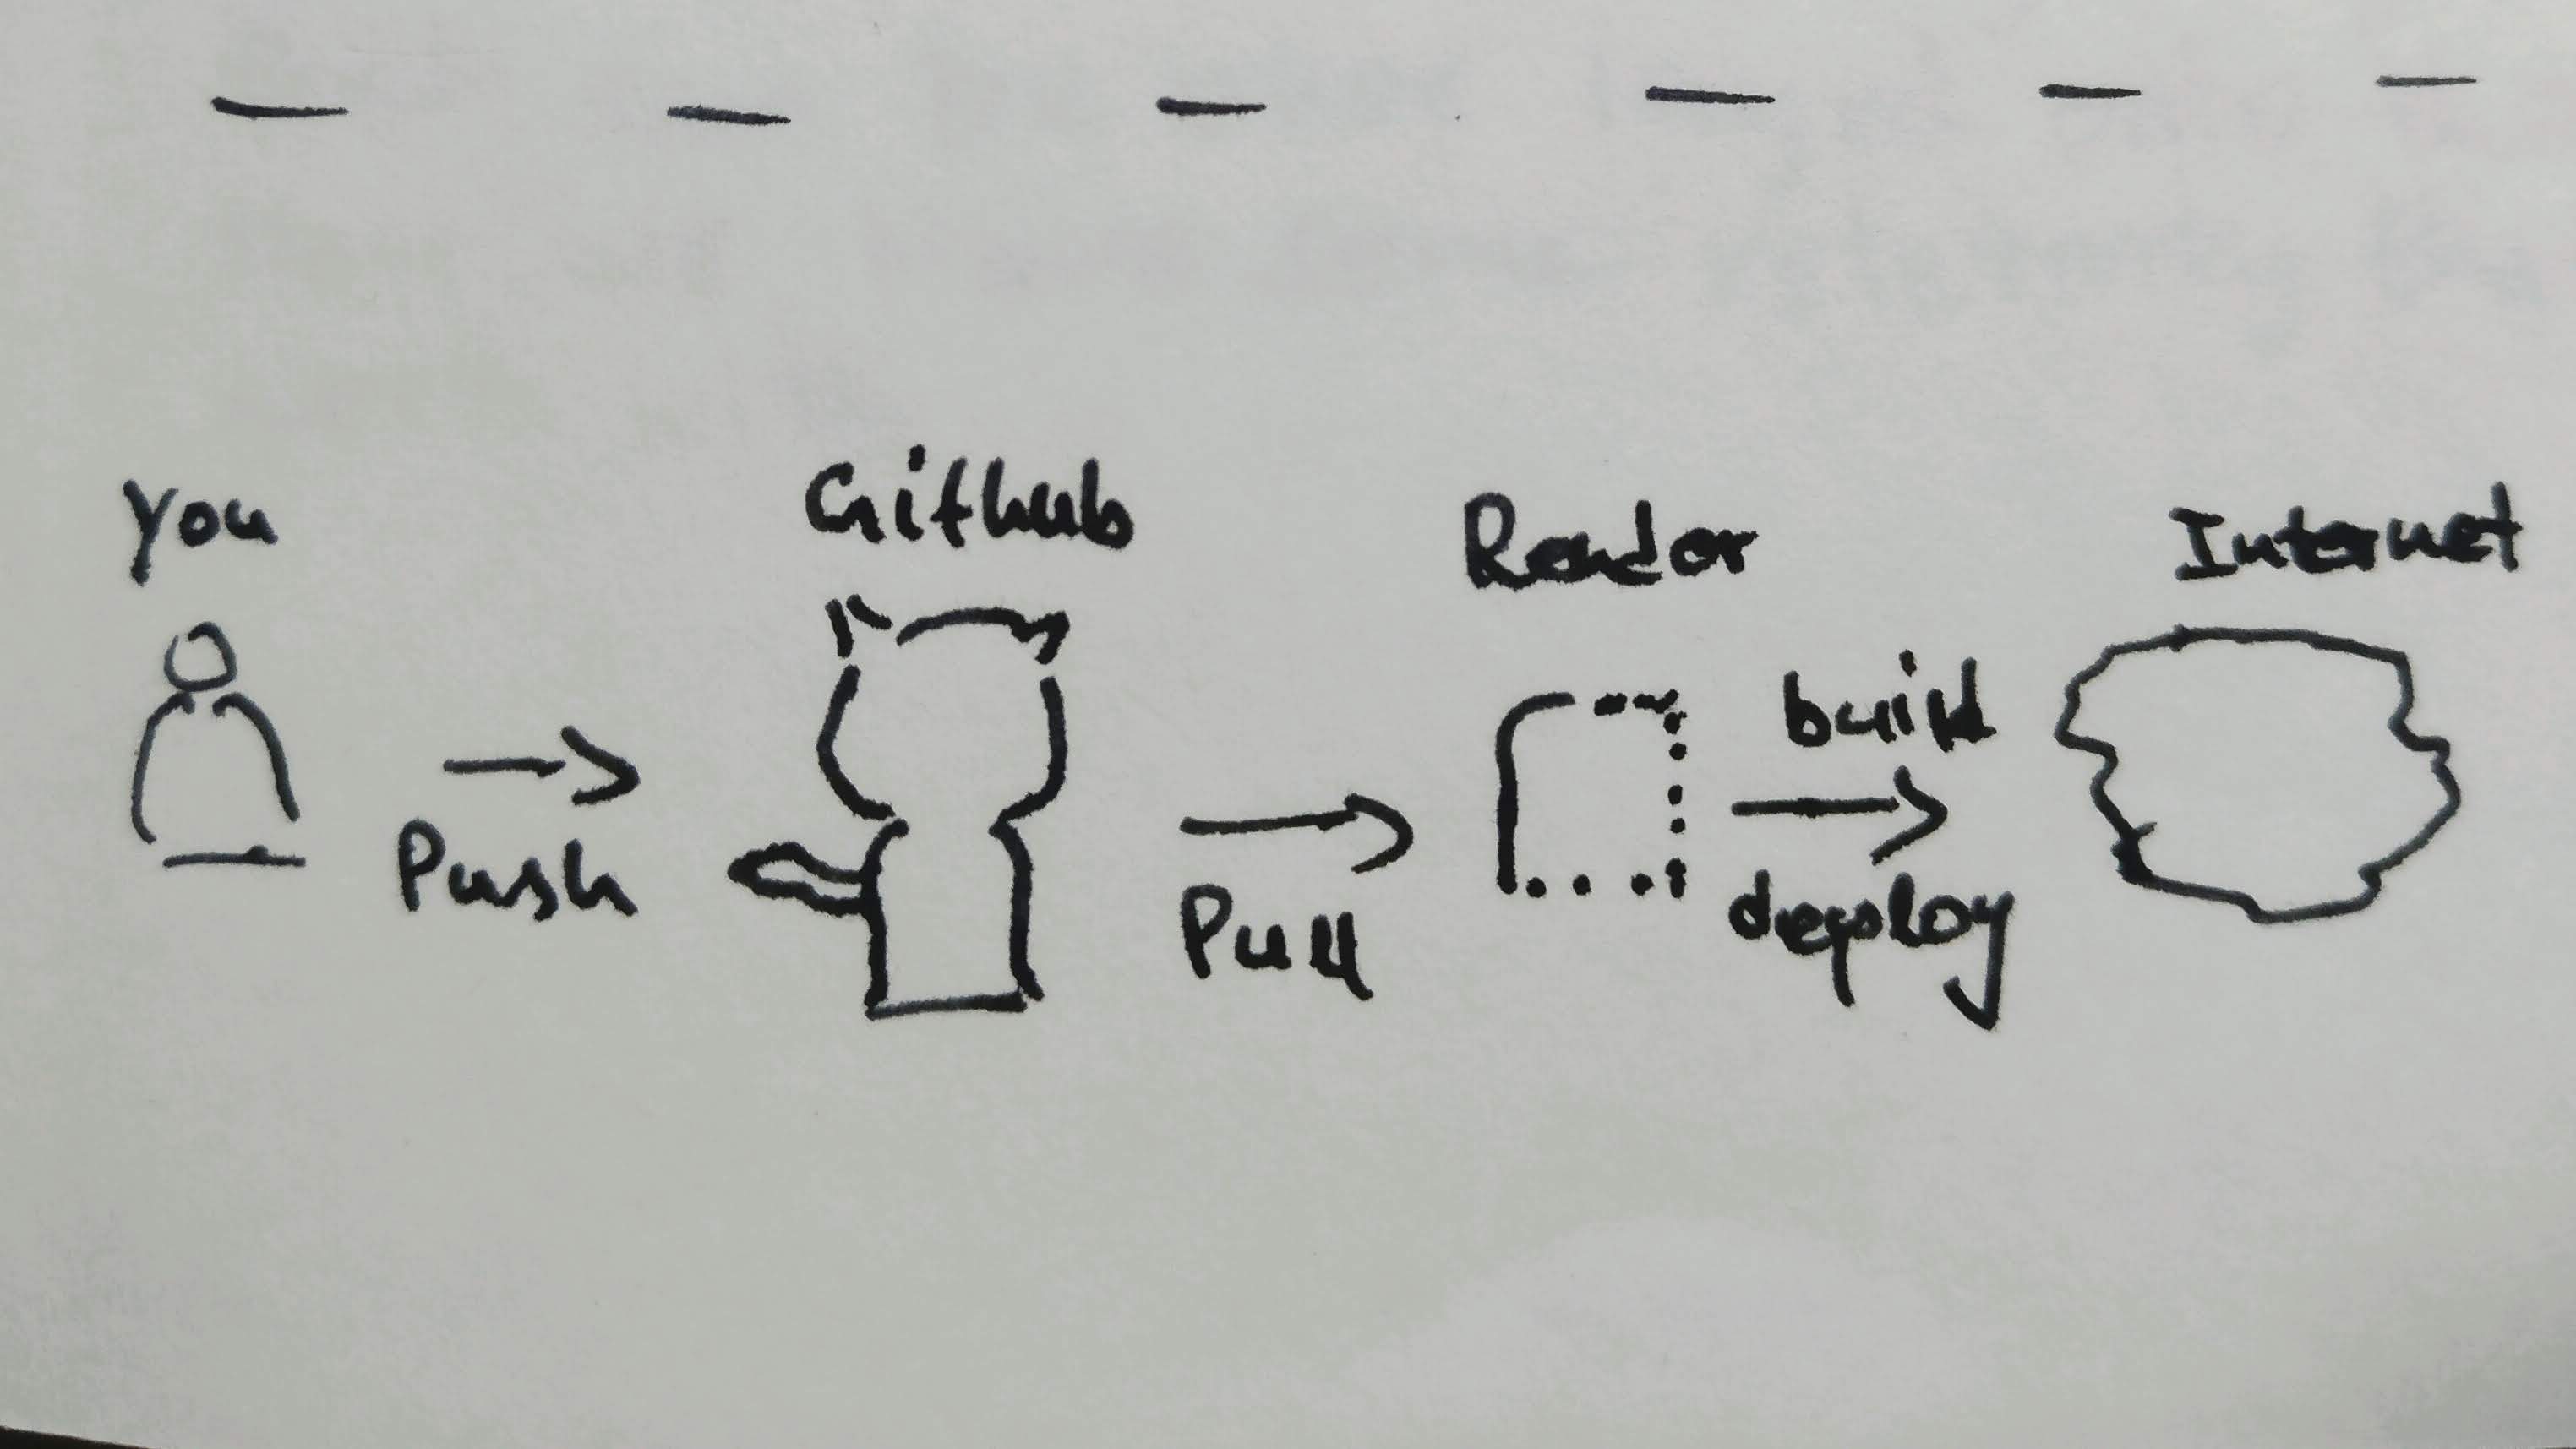 You
Github
Render
Internet
Push
Pull
build
deploy